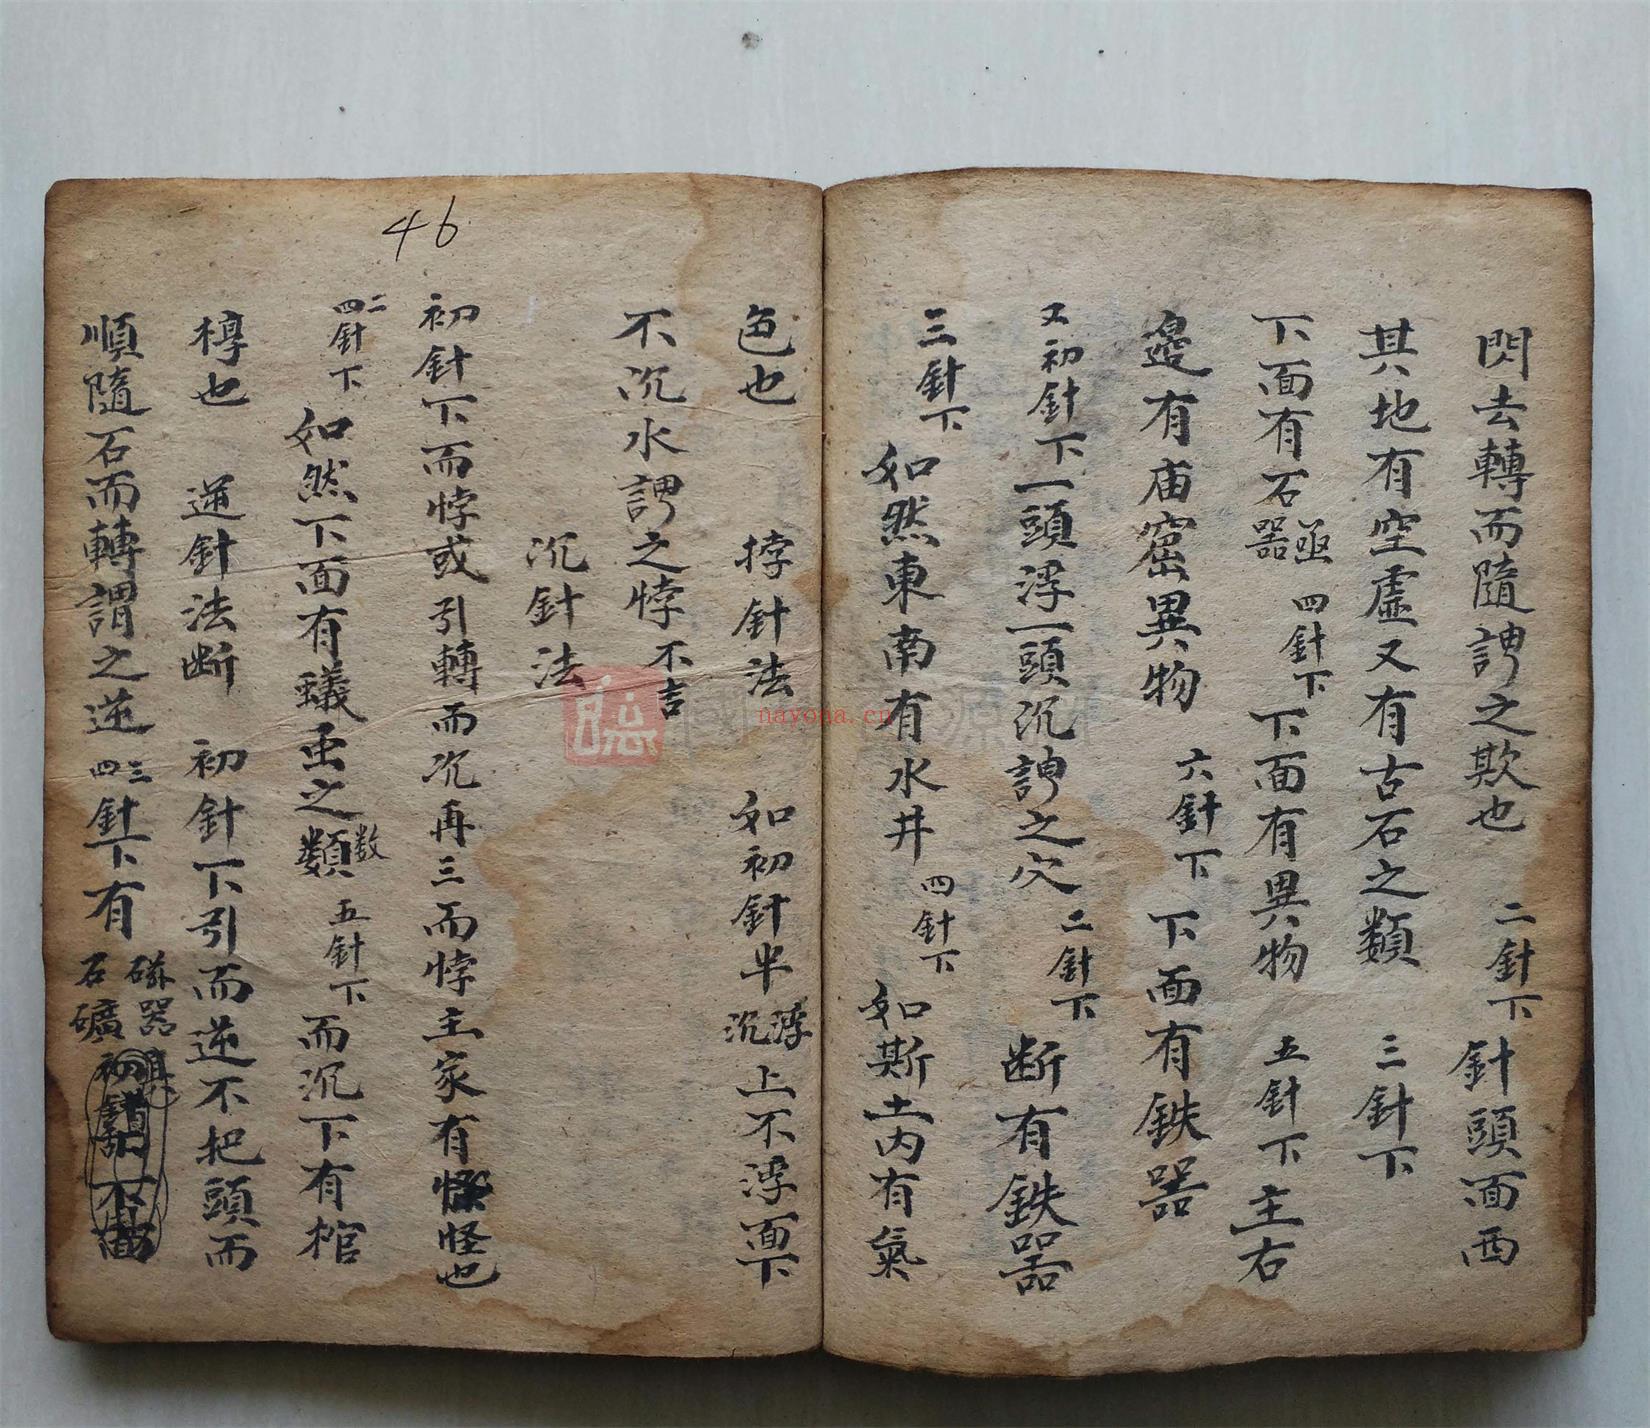 閃去轉而隨謂之欺也 二針下 針頭面西
其地有空虛又有古石之類 三針下
下面有石 器 四針下 下面有異物 五針下 主右
邊有庙窟異物 六針下 下面有鉄器
又初針下一頭浮一頭沉謂之穴 二針下 断有鉄器
三針下 如然東南有水井 四針下 如斯土內有氣
色也 㨶針法 如初針半浮沉上不浮面下
不沉水謂之悖 不言
沉針法
初針下而悖或引轉而沉再三而悖主家有怪也
二四針下 如然下面有蟻虫之類数 五針下 而沉下有棺
椁也 逆針法断 初針下引而逆不把頭而
順隨石而轉謂之逆 三四針下有磁器石礦
46
nayona.cn
國 源